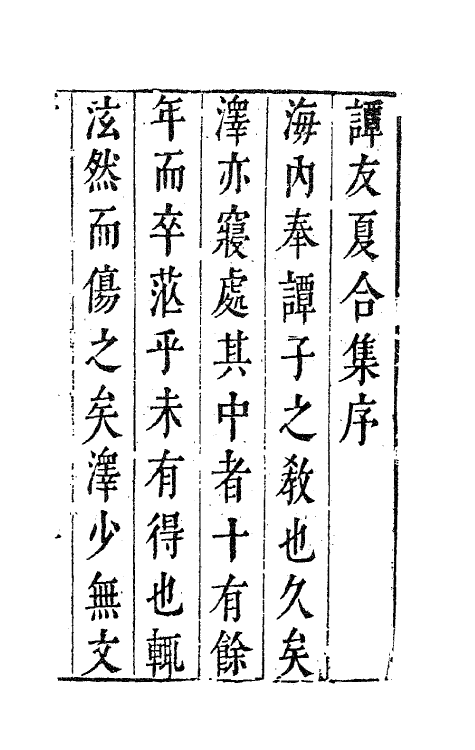 譚友夏合集序
海內奉譚子之敎也久矣
澤亦寢處其中者十有餘
年而卒茫乎未有得也輒
泫然而傷之矣澤少無文